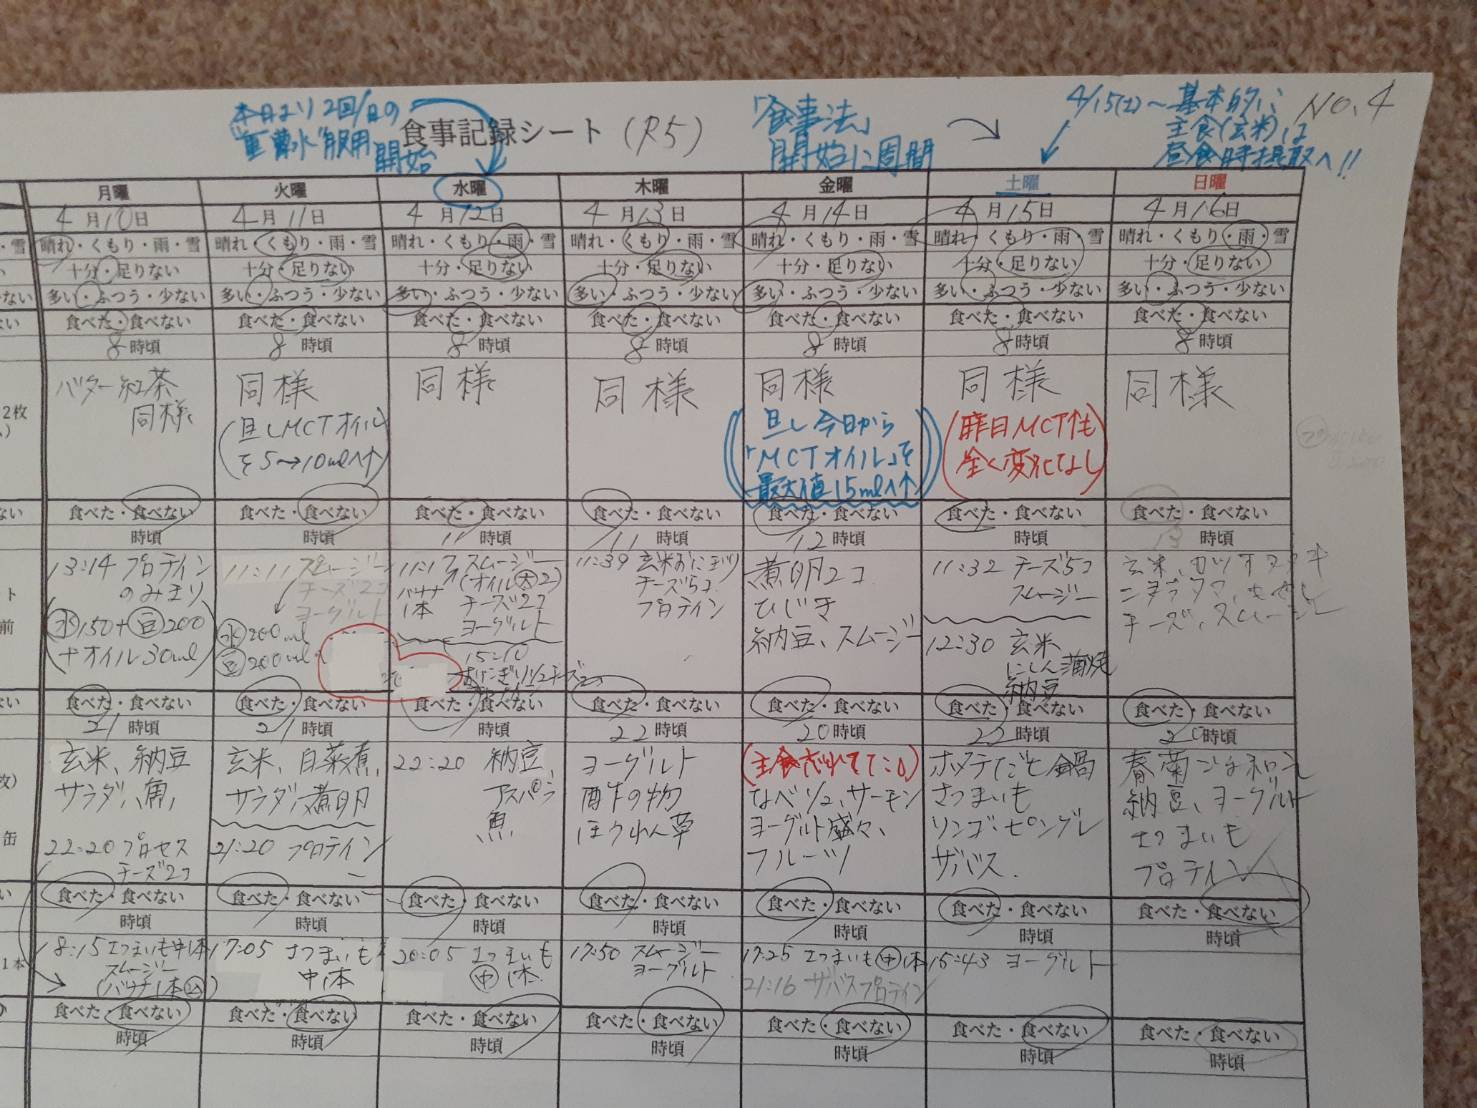 本日より2回/日の
"重曹水"服用
開始
食事記録シート (R5)
「食事法」
開始12週間
4/15(土)~基本的に
主食(玄米)は
昼食時摂取へ!!
No.4
月曜 火曜 水曜 木曜 金曜 土曜 日曜
4月10日 4月11日 4月12日 4月13日 4月14日 4月15日 4月16日
・雪 晴れ・くもり・雨・雪 晴れ・くもり・雨・雪 晴れ・くもり・雨・雪 晴れ・くもり・雨・雪 晴れ・くもり・雨・雪 晴れ・くもり・雨・雪 晴れ・くもり・雨・雪
い 十分・足りない 十分・足りない 十分・足りない 十分・足りない 十分・足りない 十分・足りない 十分・足りない
ない 多い・ふつう・少ない 多い・ふつう・少ない 多い・ふつう・少ない 多い・ふつう・少ない 多い・ふつう・少ない 多い・ふつう・少ない 多い・ふつう・少ない
ない 食べた・食べない 食べた・食べない 食べた・食べない 食べた・食べない 食べた・食べない 食べた・食べない 食べた・食べない
8時頃 8時頃 8時頃 8時頃 8時頃 8時頃 8時頃
2枚
バター紅茶
同様
同様
(旦しMCTオイル
を5→10mlへ↑)
同様
同様
同様
旦し今日から
「MCTオイル」を
最大値15mlへ↑
同様
(昨日MCT性も
全く変化なし)
同様
ない 食べた・食べない 食べた・食べない 食べた・食べない 食べた・食べない 食べた・食べない 食べた・食べない 食べた・食べない
時頃 時頃 11時頃 11時頃 12時頃 時頃 13時頃
ト
前
13:14 プロテイン
のみまり
(水150+豆200
+オイル30ml)
11:11 スムージー
チーズ2コ
ヨーグルト
水200ml
豆200ml
11:17 スムージー
(オイル大2)
バナナ
1本
チーズ2コ
ヨーグルト
15:10
11:39 玄米おにぎり
チーズ5コ
プロテイン
煮卵2コ
ひじき
納豆、スムージー
11:32 チーズ5コ
スムージー
12:30 玄米
にしん蒲焼
納豆
玄米、カツオタタキ
チーズ、スムージー
ない 食べた・食べない 食べた・食べない 食べた・食べない 食べた・食べない 食べた・食べない 食べた・食べない 食べた・食べない
21時頃 21時頃 時頃 22時頃 20時頃 22時頃 20時頃
枚)
缶
玄米、納豆
サラダ、魚
22:20 プロセス
チーズ2コ
玄米、白菜煮、
サラダ、煮卵
21:20 プロテイン
22:20 納豆
アスパラ
魚
ヨーグルト
酢の物
ほうれん草
(主食だけべてた:0)
なべ、サーモン
ヨーグルト盛々、
フルーツ
ホタテたこ鍋
さつまいも
リンゴ・ピングレ
ザバス
春菊ごま和え
納豆、ヨーグルト
さつまいも
プロテイン
い 食べた・食べない 食べた・食べない 食べた・食べない 食べた・食べない 食べた・食べない 食べた・食べない 食べた・食べない
時頃 時頃 時頃 時頃 時頃 時頃 時頃
1本
18:15 さつまいも中1本
スムージー
17:05 さつまいも
中1本
20:05 さつまいも
中1本
17:50 スムージー
ヨーグルト
17:25 さつまいも中1本
21:16 ザバスプロテイン
15:43 ヨーグルト
食べた・食べない 食べた・食べない 食べた・食べない 食べた・食べない 食べた・食べない 食べた・食べない 食べた・食べない
時頃 時頃 時頃 時頃 時頃 時頃 時頃